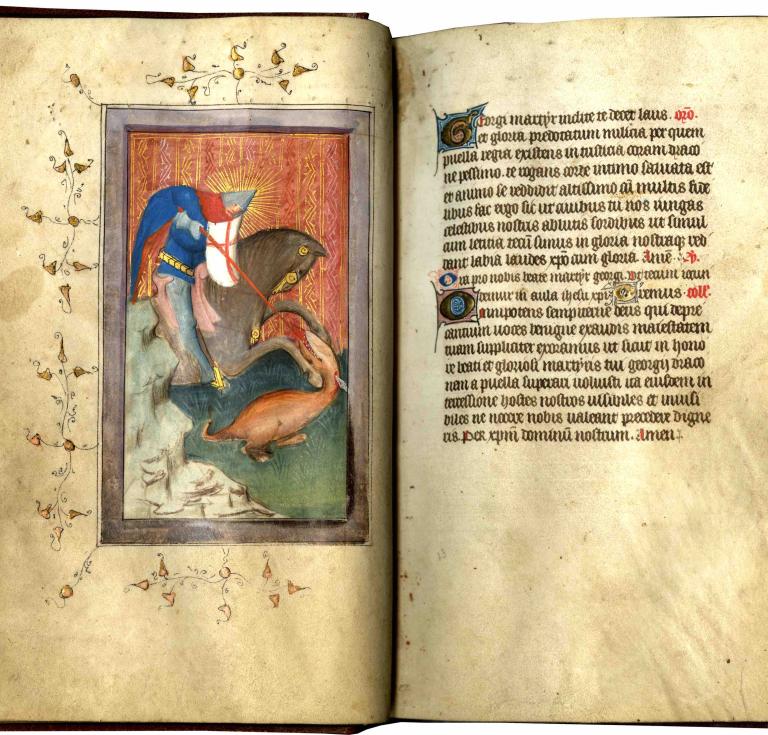 Georgi martyr inclite te decet laus. orō.
et gloria predotatum milicia per quem
puella regia existens in tristicia coram draco
ne pessimo. te rogans corde intimo saluata est
et animo se reddidit altissimo cū multis fide
libus fac ergo sic ut auibus tu nos iungas
celestibus nostris ablutis sordibus ut simul
cum letitia tecū simus in gloria nostraqꝫ red
dant labia laudes xpō cum gloria. Amē. V.
Ora pro nobis beate martyr georgi. Ut tecum
in aula ihesu xpi. Oremus. coll.
Omnipotens sempiterne deus qui depre
cantium uoces benigne exaudis maiestatem
tuam suppliciter exoramus ut sicut in hono
re beati et gloriosi martyris tui georgij draco
nem a puella superari uoluisti ita eiusdem in
tercessione hostes nostros uisibiles et inuisi
biles ne nocere nobis ualeant precedere digne
ris. Per xpm̄ dominū nostrum. Amen.